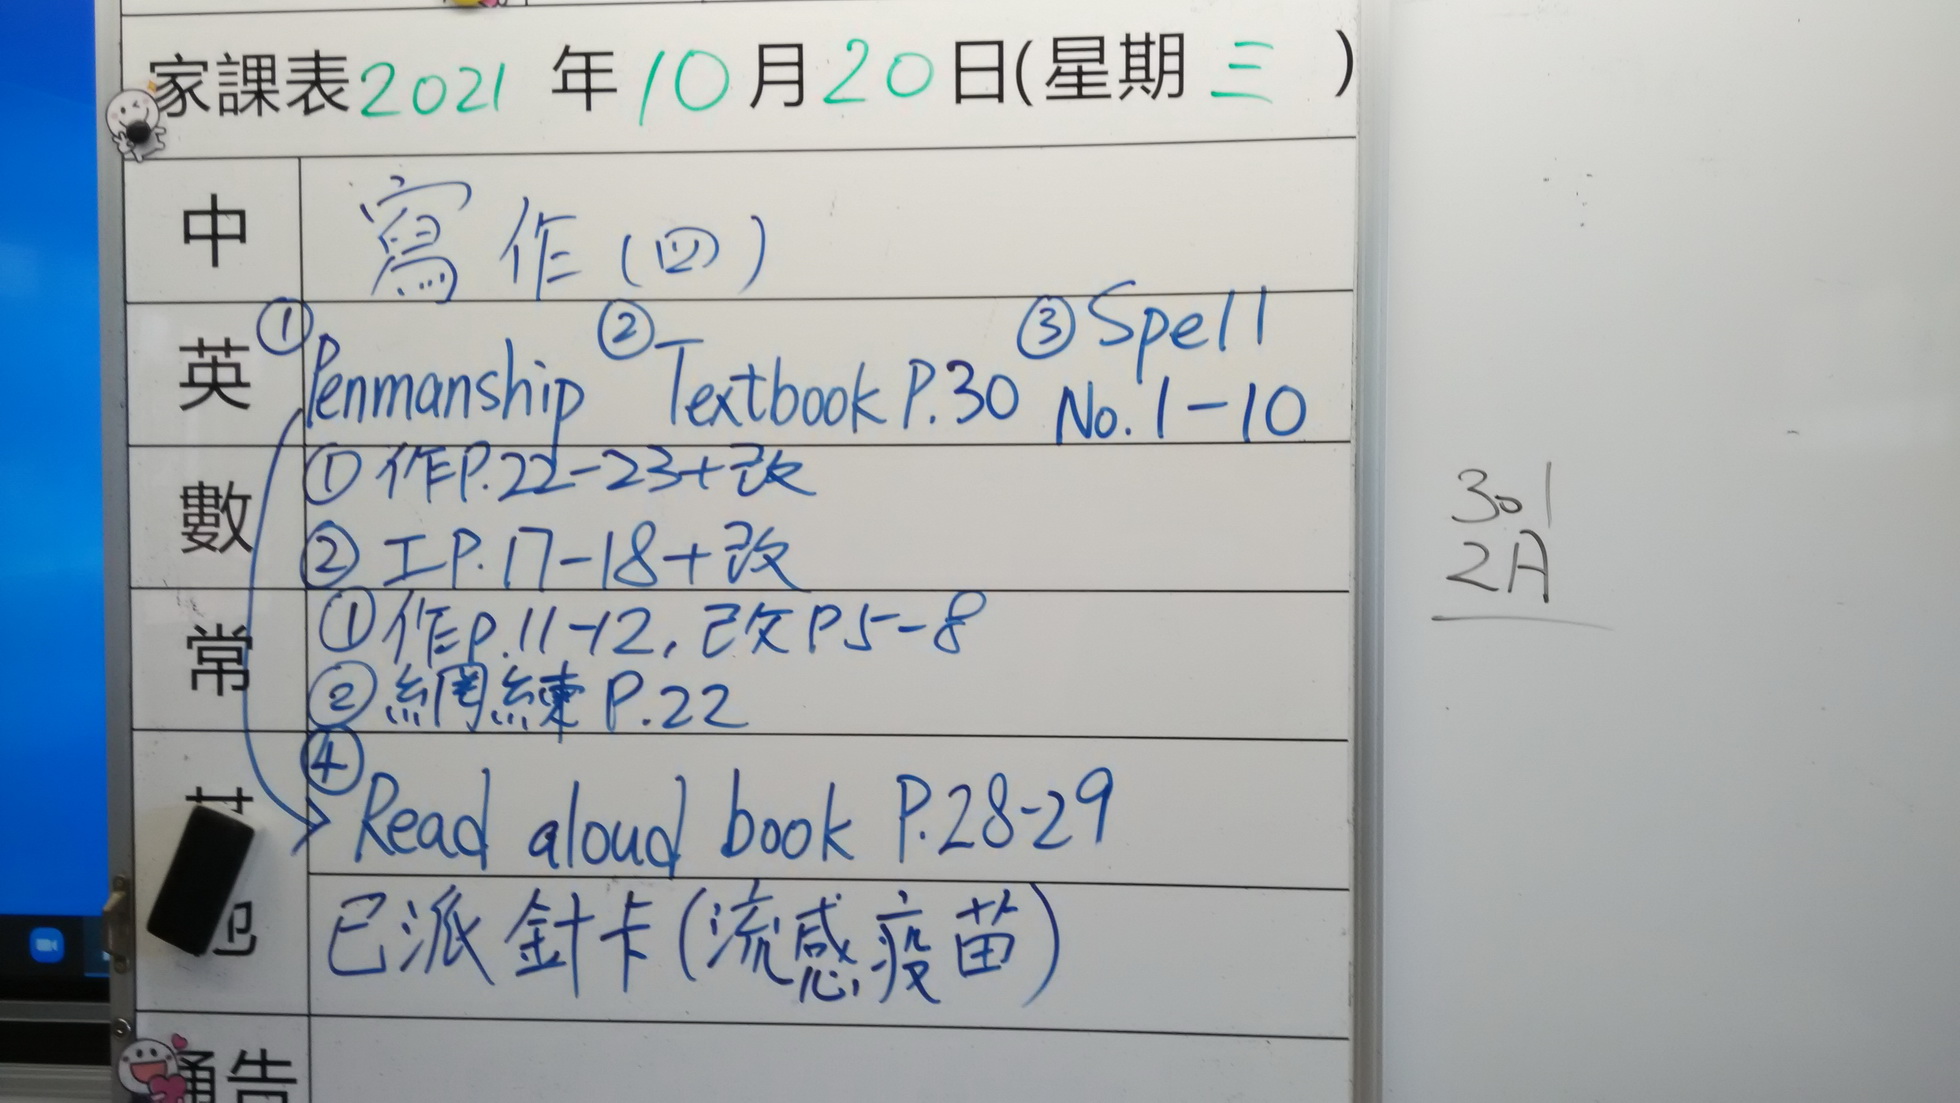 家課表2021年10月20日(星期三)
中 寫作(四)
英 ①Penmanship ②Textbook P.30 ③Spell No.1-10
數 ①作P.22-23+改
②工P.17-18+改
常 ①作p.11-12,改P5-8
②網練P.22
④Read aloud book P.28-29
已派針卡(流感疫苗)
通告
301
2A